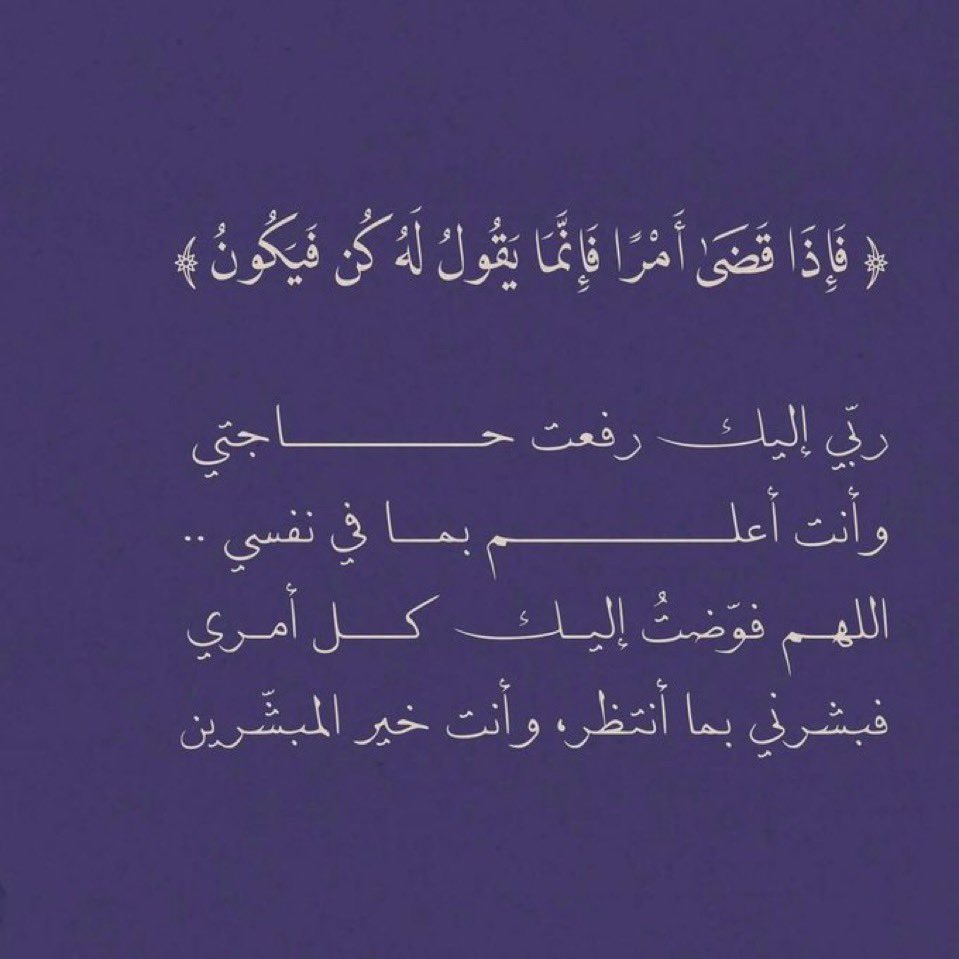 ﴿ فَإِذَا قَضَىٰ أَمْرًا فَإِنَّمَا يَقُولُ لَهُ كُن فَيَكُونُ ﴾
ربّي إليك رفعت حـــــــــاجتي
وأنت أعلـــــــــم بمـا في نفسي ..
اللهـم فوّضتُ إليـك كـــل أمـري
فبشرني بما أنتظر، وأنت خير المبشّرين